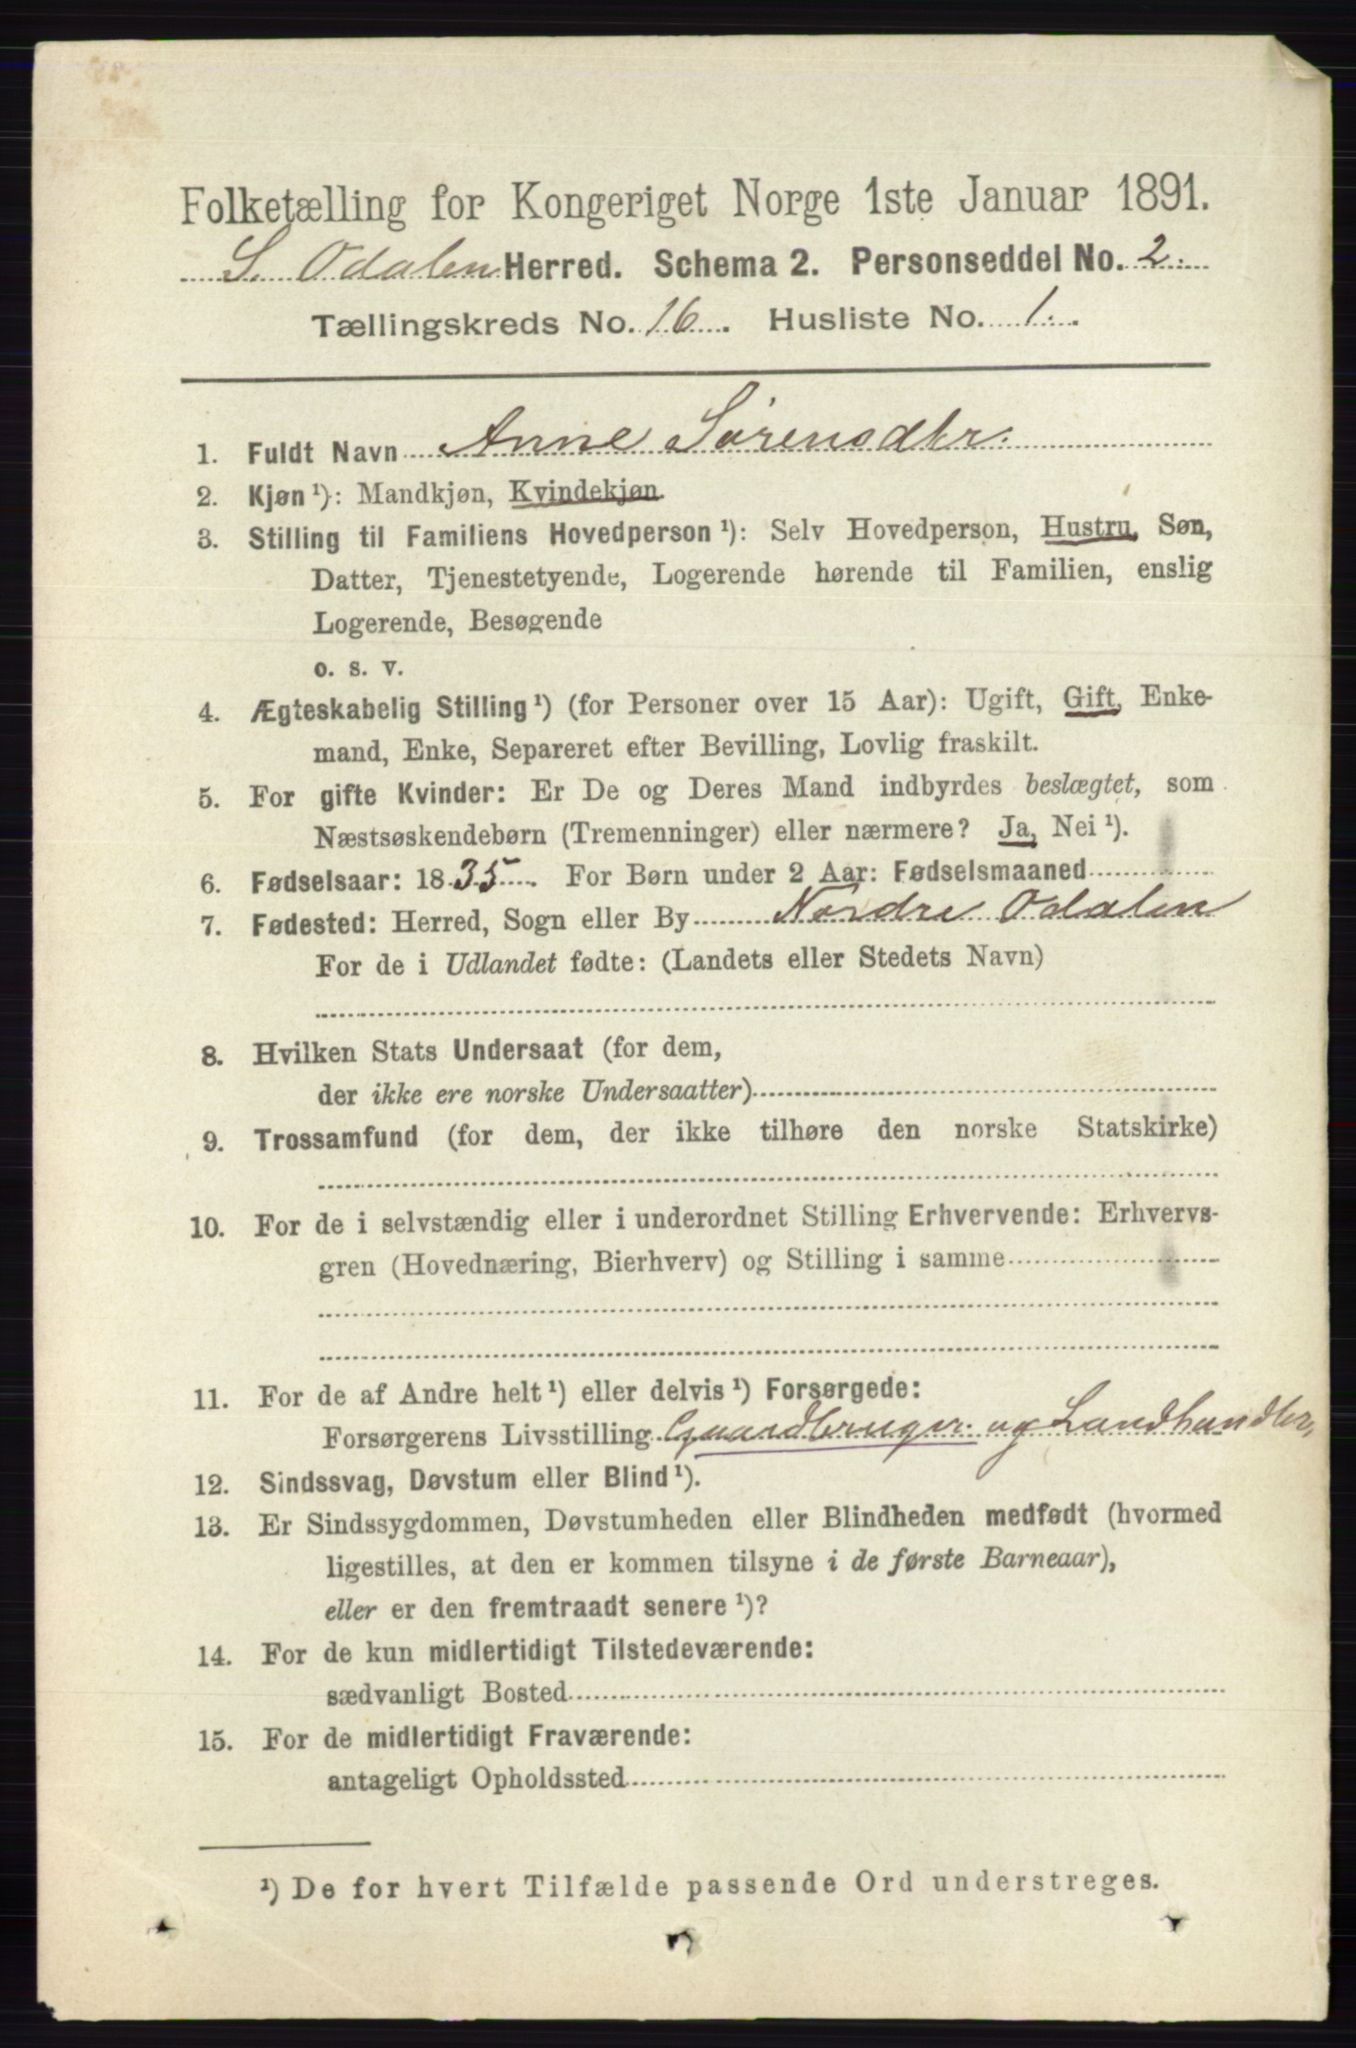 Folketælling for Kongeriget Norge 1ste Januar 1891.
S. Odalen Herred. Schema 2. Personseddel No. 2.
Tællingskreds No. 16. Husliste No. 1.
1. Fuldt Navn Anne Sørensdtr.
2. Kjøn ¹): Mandkjøn, Kvindekjøn.
3. Stilling til Familiens Hovedperson ¹): Selv Hovedperson, Hustru, Søn,
Datter, Tjenestetyende, Logerende hørende til Familien, enslig
Logerende, Besøgende
o. s. v.
4. Ægteskabelig Stilling ¹) (for Personer over 15 Aar): Ugift, Gift, Enke-
mand, Enke, Separeret efter Bevilling, Lovlig fraskilt.
5. For gifte Kvinder: Er De og Deres Mand indbyrdes beslægtet, som
Næstsøskendebørn (Tremenninger) eller nærmere? Ja, Nei ¹).
6. Fødselsaar: 1835. For Børn under 2 Aar: Fødselsmaaned
7. Fødested: Herred, Sogn eller By Nordre Odalen
For de i Udlandet fødte: (Landets eller Stedets Navn)
8. Hvilken Stats Undersaat (for dem,
der ikke ere norske Undersaatter)
9. Trossamfund (for dem, der ikke tilhøre den norske Statskirke)
10. For de i selvstændig eller i underordnet Stilling Erhvervende: Erhvervs-
gren (Hovednæring, Bierhverv) og Stilling i samme
11. For de af Andre helt ¹) eller delvis ¹) Forsørgede:
Forsørgerens Livsstilling Gaardbruger og Landhandler,
12. Sindssvag, Døvstum eller Blind ¹).
13. Er Sindssygdommen, Døvstumheden eller Blindheden medfødt (hvormed
ligestilles, at den er kommen tilsyne i de første Barneaar),
eller er den fremtraadt senere ¹)?
14. For de kun midlertidigt Tilstedeværende:
sædvanligt Bosted
15. For de midlertidigt Fraværende:
antageligt Opholdssted
¹) De for hvert Tilfælde passende Ord understreges.